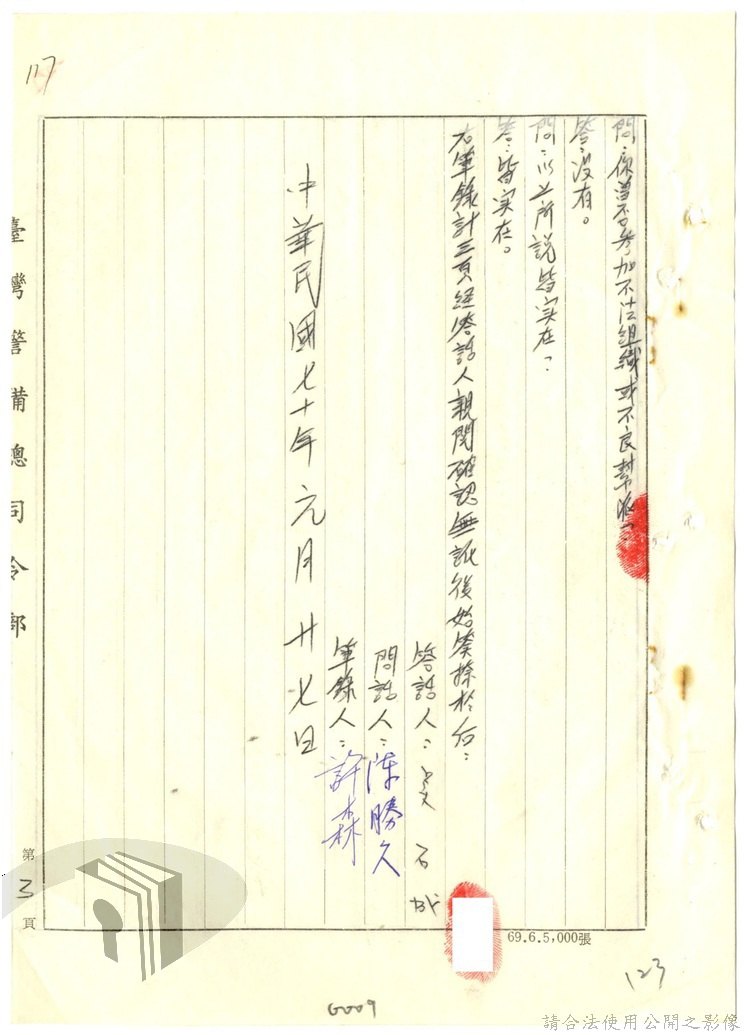 117
問：你曾否參加不法組織或不良幫派？
答：沒有。
問：以上所說皆實在？
答：皆實在。
右筆錄計三頁經答話人親閱確認無訛後始簽捺於后：
答話人：吳石成
問話人：陳勝久
筆錄人：許森
中華民國七十年元月廿七日
臺灣警備總司令部
第3頁
69.6.5,000張
123
0009
請合法使用公開之影像